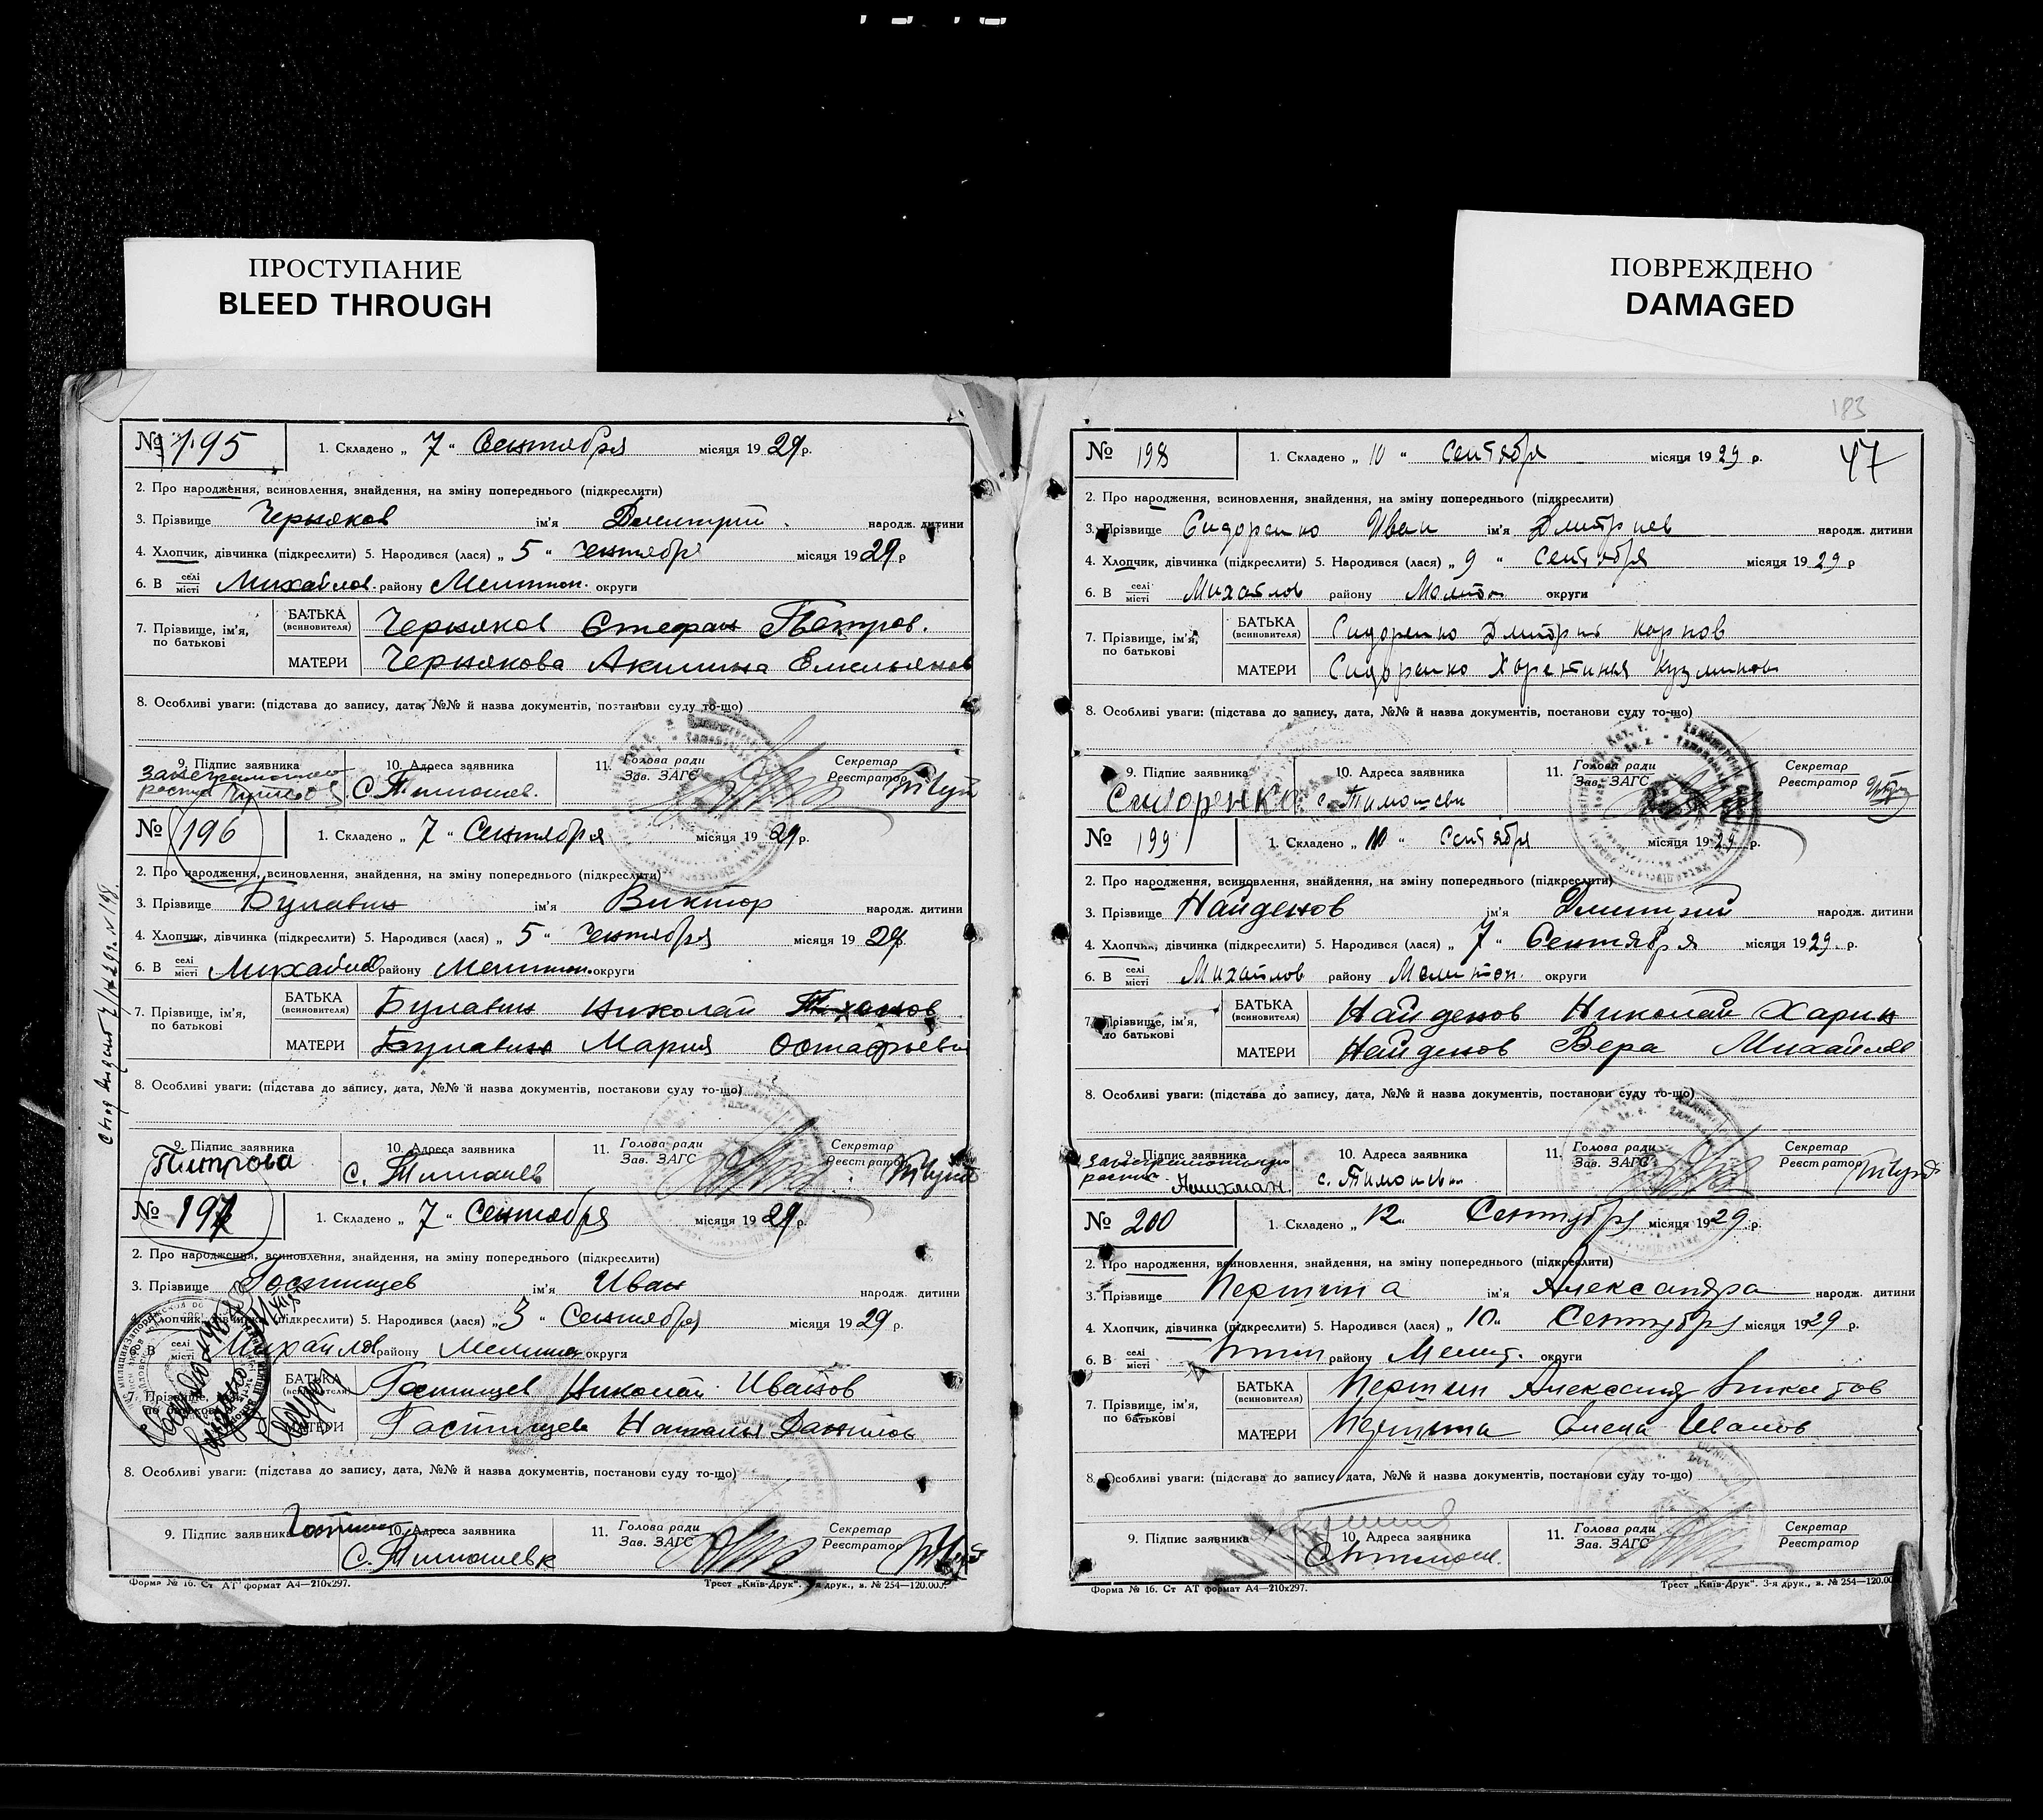 ПРОСТУПАНИЕ
BLEED THROUGH
ПОВРЕЖДЕНО
DAMAGED
№ 195 1. Складено „ 7 “ Сентября місяця 1929 р.
2. Про народження, всиновлення, знайдення, на зміну попереднього (підкреслити)
3. Прізвище Черняков ім'я Дмитрий народж. дитини
4. Хлопчик, дівчинка (підкреслити) 5. Народився (лася) „ 5 “ сентябр місяця 1929 р
6. В селі місті Михайлов. району Мелитоп. округи
7. Прізвище, ім'я, по батькові
БАТЬКА (всиновителя) Черняков Стефан Петров.
МАТЕРИ Чернякова Акилина Емельянов
8. Особливі уваги: (підстава до запису, дата, №№ й назва документів, постанови суду то-що)
9. Підпис заявника 10. Адреса заявника 11. Голова ради Зав. ЗАГС Секретар Реєстратор
с. Тимошев.
№ 196 1. Складено „ 7 “ Сентября місяця 1929 р.
2. Про народження, всиновлення, знайдення, на зміну попереднього (підкреслити)
3. Прізвище Булавин ім'я Виктор народж. дитини
4. Хлопчик, дівчинка (підкреслити) 5. Народився (лася) „ 5 “ сентября місяця 1929.
6. В селі місті Михайлов району Мелитоп. округи
7. Прізвище, ім'я, по батькові
БАТЬКА (всиновителя) Булавин Николай Тихонов
МАТЕРИ Булавин Мария Остафьевна
8. Особливі уваги: (підстава до запису, дата, №№ й назва документів, постанови суду то-що)
9. Підпис заявника 10. Адреса заявника 11. Голова ради Зав. ЗАГС Секретар Реєстратор
с. Тимашев
№ 197 1. Складено „ 7 “ Сентября місяця 1929 р.
2. Про народження, всиновлення, знайдення, на зміну попереднього (підкреслити)
3. Прізвище Гостищев ім'я Иван народж. дитини
4. Хлопчик, дівчинка (підкреслити) 5. Народився (лася) „ 3 “ Сентября місяця 1929 р.
6. В селі місті Михайлов району Мелитоп округи
7. Прізвище, ім'я, по батькові
БАТЬКА Гостищев Николай Иванов
МАТЕРИ Гостищева Наталья Данилов
8. Особливі уваги: (підстава до запису, дата, №№ й назва документів, постанови суду то-що)
9. Підпис заявника 10. Адреса заявника 11. Голова ради Зав. ЗАГС Секретар Реєстратор
С. Тимошевк
Форма № 16. Ст АТ формат А4—210х297. Трест „Київ-Друк“. 3-я друк., в. № 254—120.000.
183
№ 198 1. Складено „ 10 “ сентябр місяця 1929 р. 47
2. Про народження, всиновлення, знайдення, на зміну попереднього (підкреслити)
3. Прізвище Сидоренко Иван ім'я Дмитриев народж. дитини
4. Хлопчик, дівчинка (підкреслити) 5. Народився (лася) „ 9 “ сентября місяця 1929 р
6. В селі місті Михайлов району Мелитоп округи
7. Прізвище, ім'я, по батькові
БАТЬКА (всиновителя) Сидоренко Дмитрий Карпов
МАТЕРИ Сидоренко Харетинья Кузминов
8. Особливі уваги: (підстава до запису, дата, №№ й назва документів, постанови суду то-що)
9. Підпис заявника 10. Адреса заявника 11. Голова ради Зав. ЗАГС Секретар Реєстратор
Сидоренко с. Тимошевк
№ 199 1. Складено „ 10 “ Сентября місяця 1929 р.
2. Про народження, всиновлення, знайдення, на зміну попереднього (підкреслити)
3. Прізвище Найденов ім'я Дмитрий народж. дитини
4. Хлопчик, дівчинка (підкреслити) 5. Народився (лася) „ 7 “ Сентября місяця 1929. р.
6. В селі місті Михайлов району Мелитоп. округи
7. Прізвище, ім'я, до батькові
БАТЬКА (всиновителя) Найденов Николай Харин
МАТЕРИ Найденов Вера Михайлов
8. Особливі уваги: (підстава до запису, дата, №№ й назва документів, постанови суду то-що)
9. Підпис заявника 10. Адреса заявника 11. Голова ради Зав. ЗАГС Секретар Реєстратор
с. Тимошевк
№ 200 1. Складено „ 12 “ Сентября місяця 1929 р.
2. Про народження, всиновлення, знайдення, на зміну попереднього (підкреслити)
3. Прізвище ім'я Александра народж. дитини
4. Хлопчик, дівчинка (підкреслити) 5. Народився (лася) „ 10 “ Сентября місяця 1929 р.
6. В селі місті району Мелит. округи
7. Прізвище, ім'я, по батькові
БАТЬКА (всиновителя) Александр
МАТЕРИ Елена Иванов
8. Особливі уваги: (підстава до запису, дата, №№ й назва документів, постанови суду то-що)
9. Підпис заявника 10. Адреса заявника 11. Голова ради Зав. ЗАГС Секретар Реєстратор
Форма № 16. Ст АТ формат А4—210х297. Трест „Київ-Друк“. 3-я друк., в. № 254—120.00